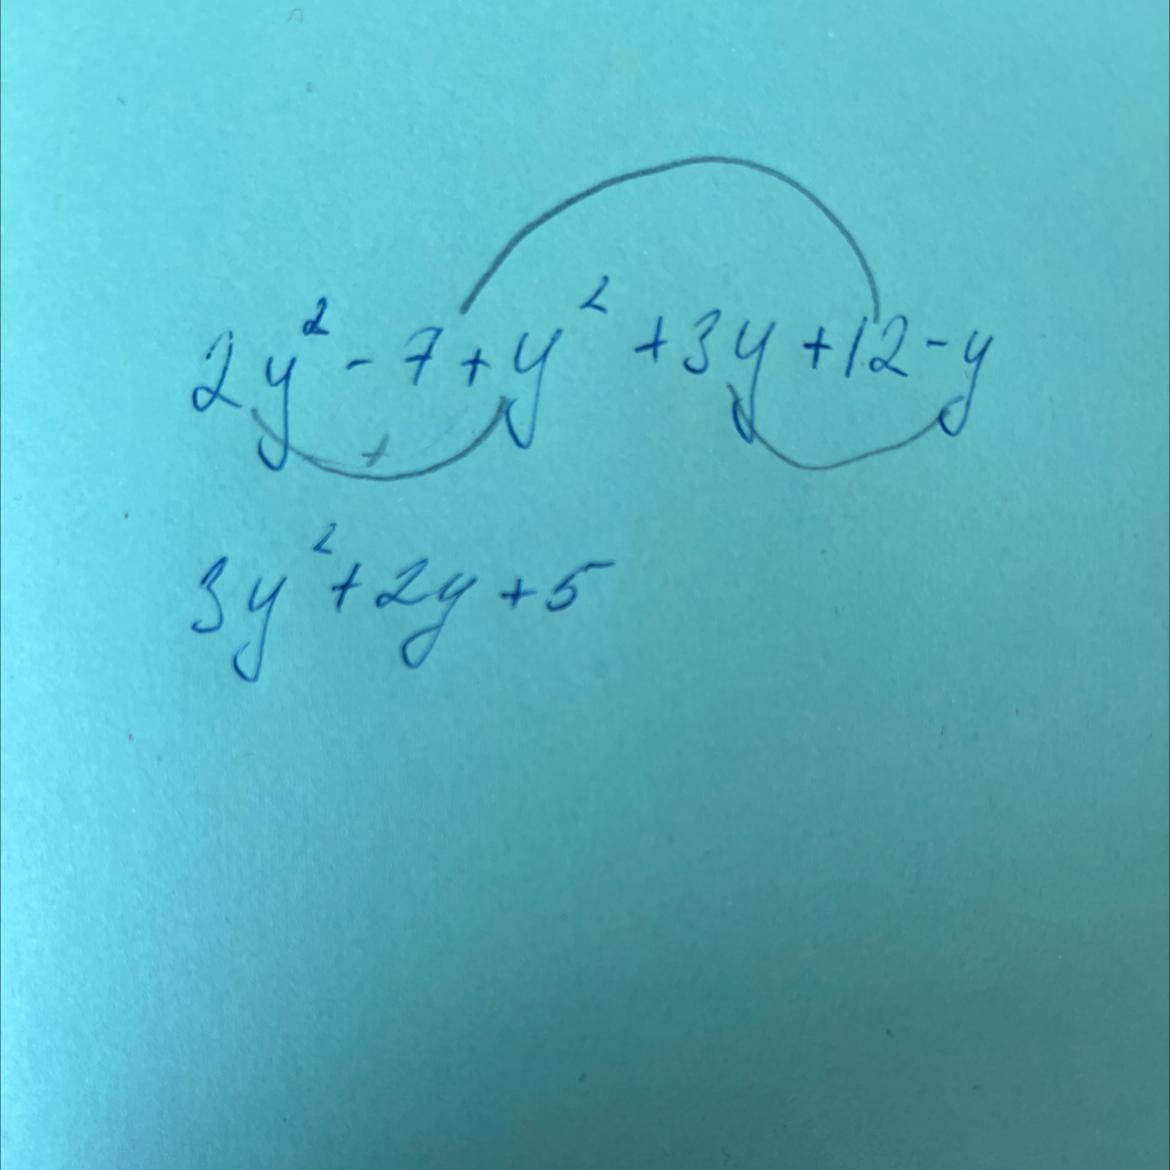 2y² - 7 + y² + 3y + 12 - y
+
3y² + 2y + 5